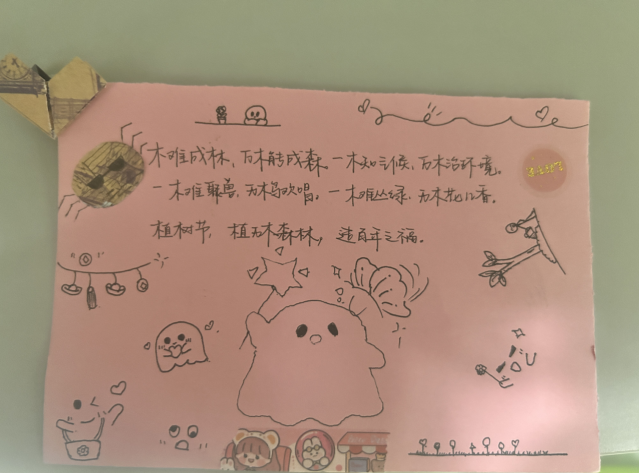 木难成林，万木能成森。一木知气候，万木治环境。
一木难聚兽，万木鸟欢唱。一木难丛绿，万木花儿香。
植树节，植万木森林，造百年之福。